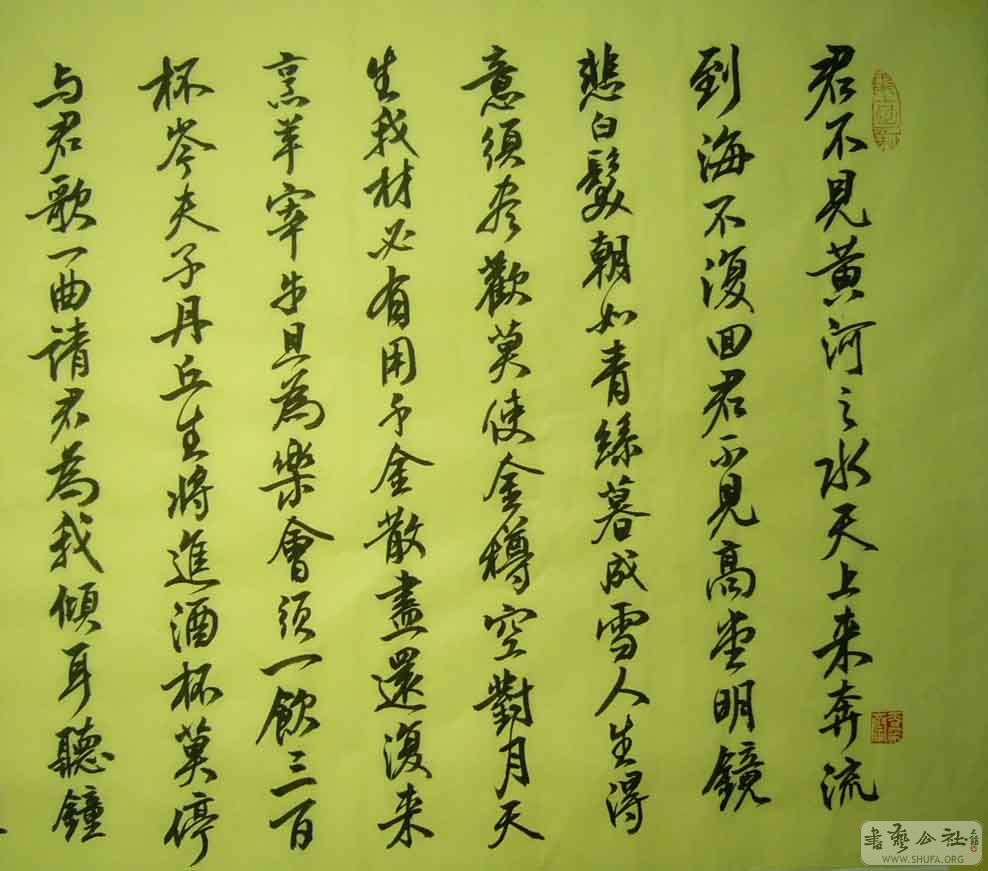 君不見黄河之水天上来奔流
到海不復回君不見高堂明鏡
悲白髮朝如青絲暮成雪人生得
意須尽歡莫使金樽空對月天
生我材必有用千金散盡還復来
烹羊宰牛且為樂會須一飲三百
杯岑夫子丹丘生將進酒杯莫停
与君歌一曲請君為我傾耳聽鐘
書藝公社
WWW.SHUFA.ORG